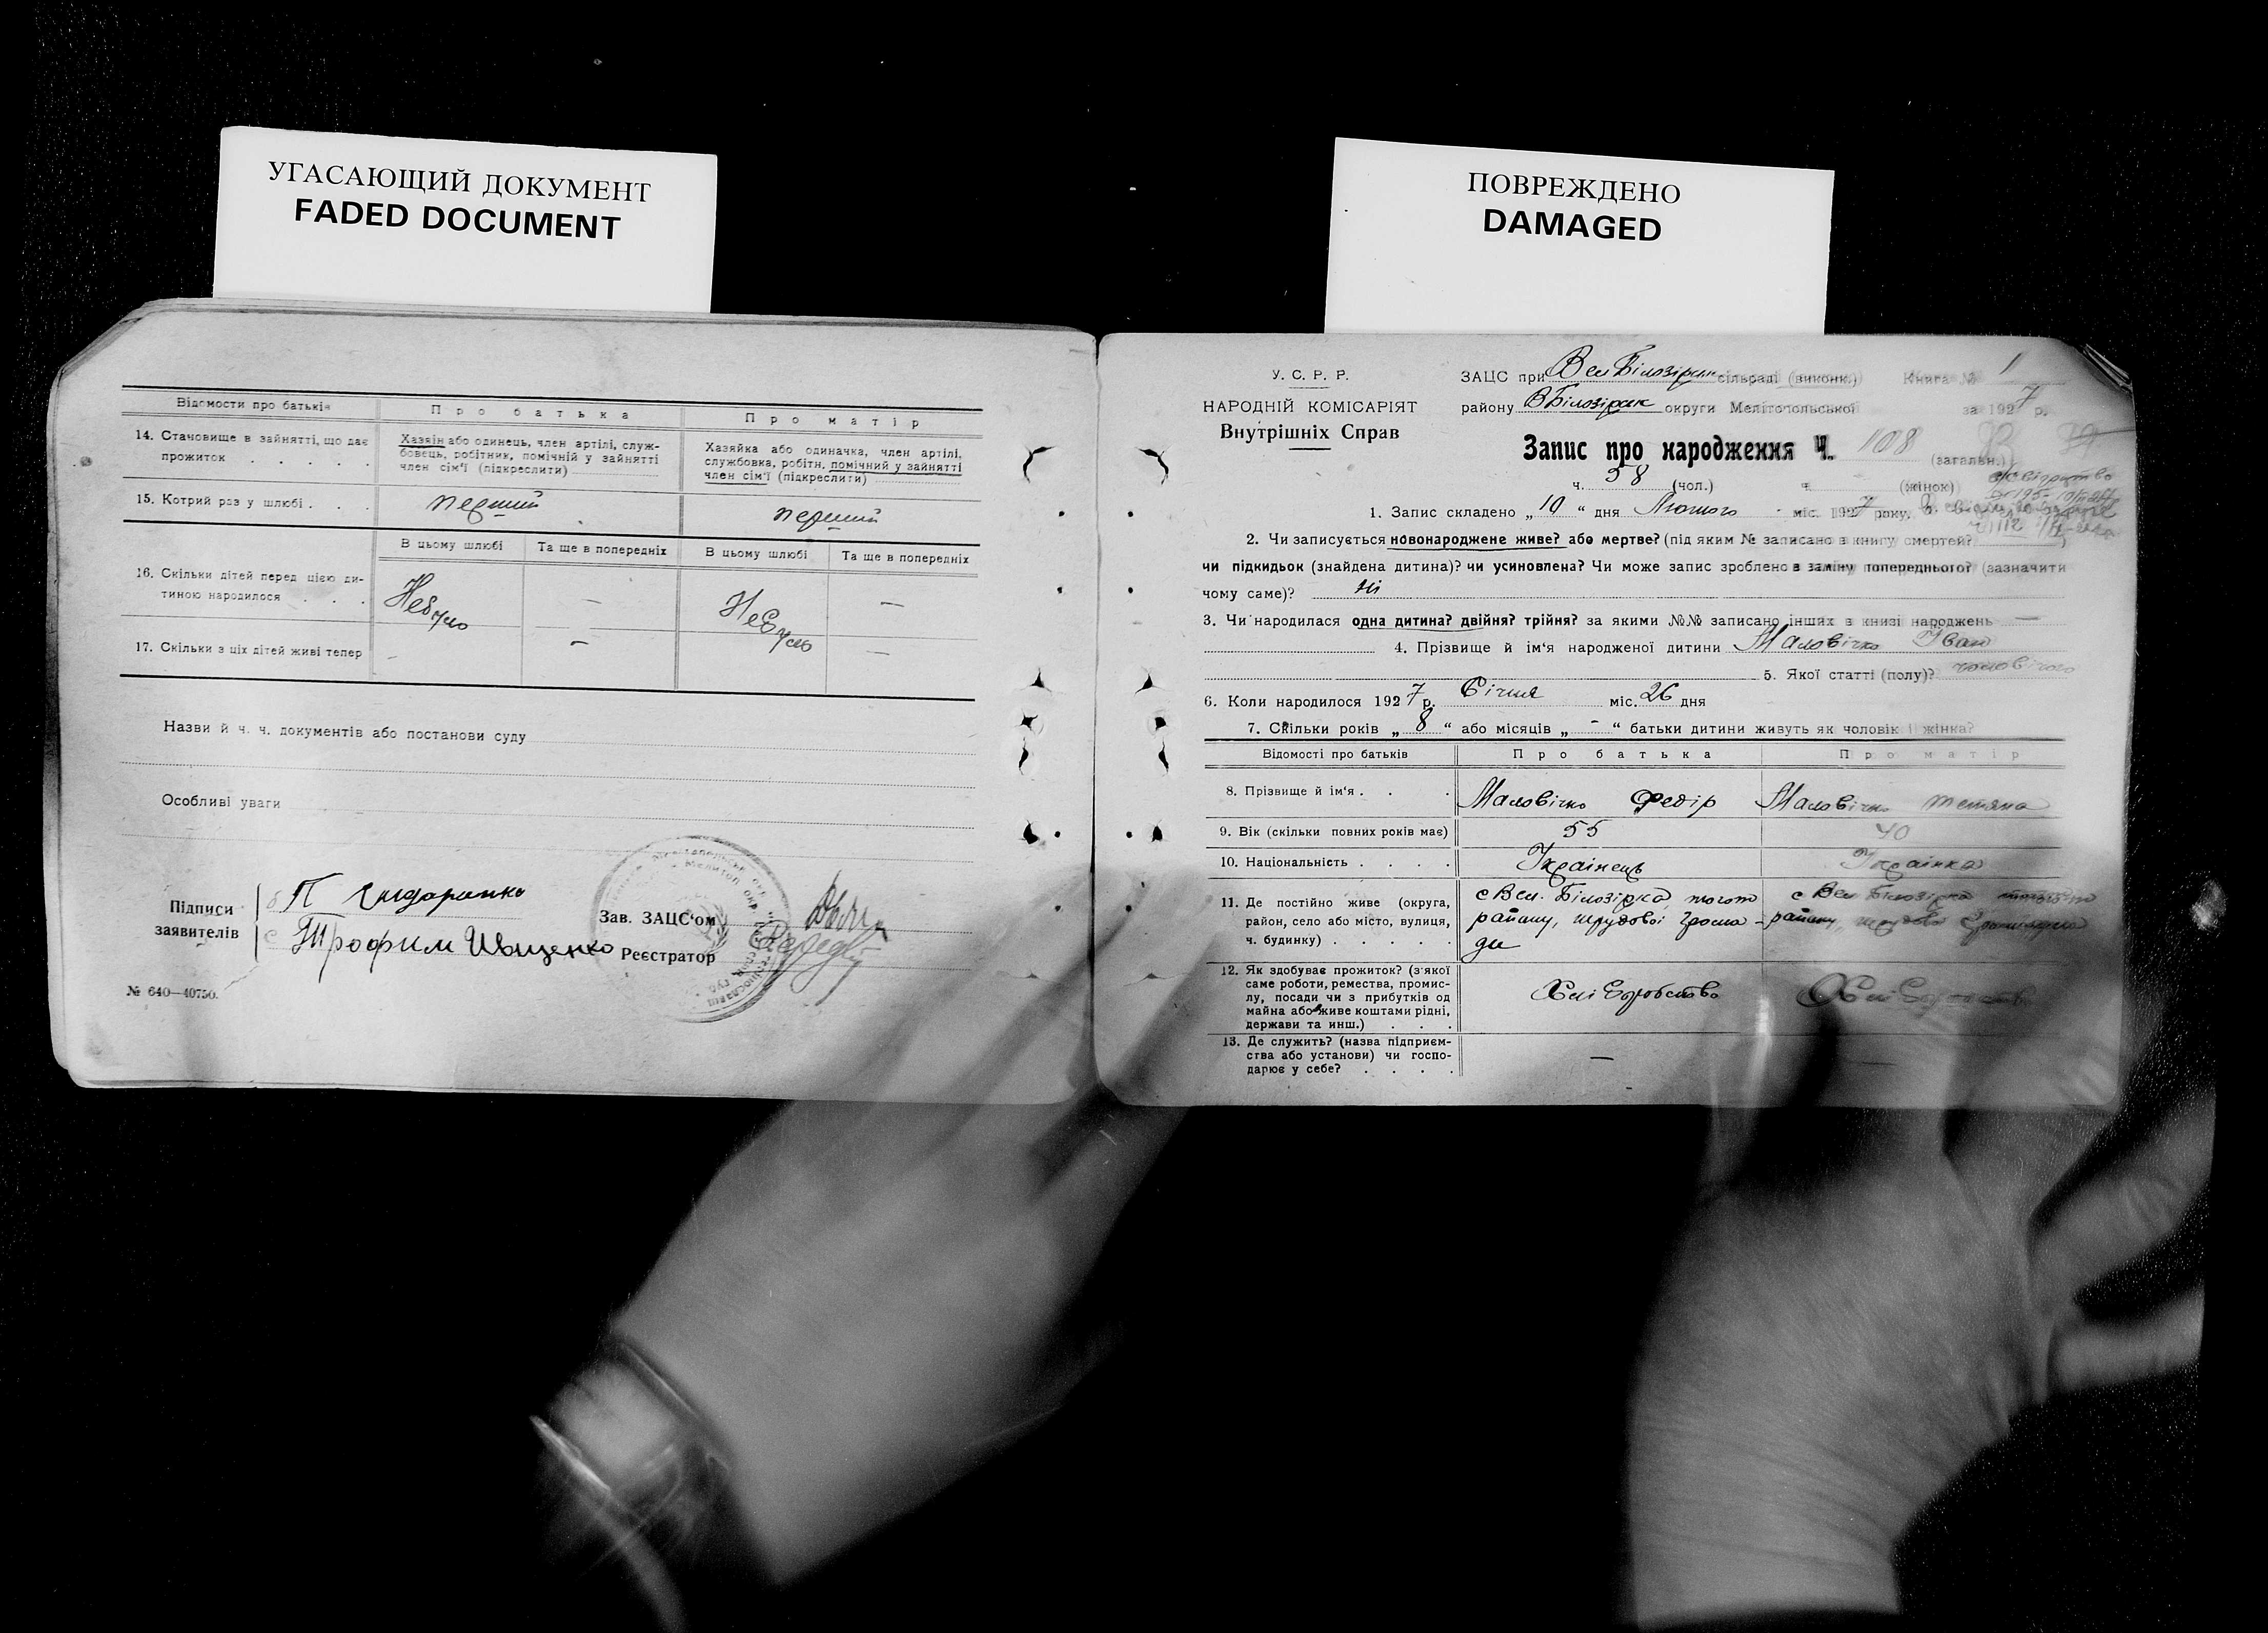 УГАСАЮЩИЙ ДОКУМЕНТ
FADED DOCUMENT
Відомости про батьків
Про батька
Про матір
14. Становище в зайнятті, що дає прожиток
Хазяін або одинець, член артілі, служ-
бовець, робітник, помічній у зайнятті
член сім'ї (підкреслити)
Хазяйка або одиначка, член артілі,
службовка, робітн. помічний у зайнятті
член сім'ї (підкреслити)
15. Котрий раз у шлюбі
перший
перший
В цьому шлюбі
Та ще в попередніх
В цьому шлюбі
Та ще в попередніх
16. Скільки дітей перед цією ди-
тиною народилося
Небуло
—
Небуло
—
17. Скільки з ціх дітей живі тепер
-
—
—
Назви й ч. ч. документів або постанови суду
Особливі уваги
Підписи
заявителів
П
Трофим Іващенко
Зав. ЗАЦС'ом
Реєстратор
№ 640—40750.
ПОВРЕЖДЕНО
DAMAGED
У. С. Р. Р.
НАРОДНІЙ КОМІСАРІЯТ
Внутрішніх Справ
ЗАЦС при Вел Білозірск сільраді (виконк.) Книга № 1
району ВБілозірск округи Мелітопольської за 1927 р.
Запис про народження Ч. 108 (загальн.)
ч. 58 (чол.) ч. (жінок)
1. Запис складено „10“ дня Лютого міс. 1927 року.
2. Чи записується новонароджене живе? або мертве? (під яким № записано в книгу смертей?
чи підкидьок (знайдена дитина)? чи усиновлена? Чи може запис зроблено в заміну попереднього? (зазначити
чому саме)? Ні
3. Чи народилася одна дитина? двійня? трійня? за якими №№ записано інших в книзі народжень —
4. Прізвище й ім'я народженої дитини Маловічко Іван
5. Якої статті (полу)? чоловічого
6. Коли народилося 1927 р. Січня міс. 26 дня
7. Скільки років „8“ або місяців „-“ батьки дитини живуть як чоловік і жінка?
Відомості про батьків
Про батька
Про матір
8. Прізвище й ім'я
Маловічко Федір
Маловічко Тетяна
9. Вік (скільки повних років має)
55
40
10. Національність
Українець
Українка
11. Де постійно живе (округа,
район, село або місто, вулиця,
ч. будинку)
с Вел. Білозірка, того
району, трудової грома-
ди
с Вел Білозірка
району,
12. Як здобуває прожиток? (з якої
саме роботи, ремества, промис-
лу, посади чи з прибутків од
майна або живе коштами рідні,
держави та инш.)
Хліборобство
Хліборобство
13. Де служить? (назва підприєм-
ства або установи) чи госпо-
дарює у себе?
—